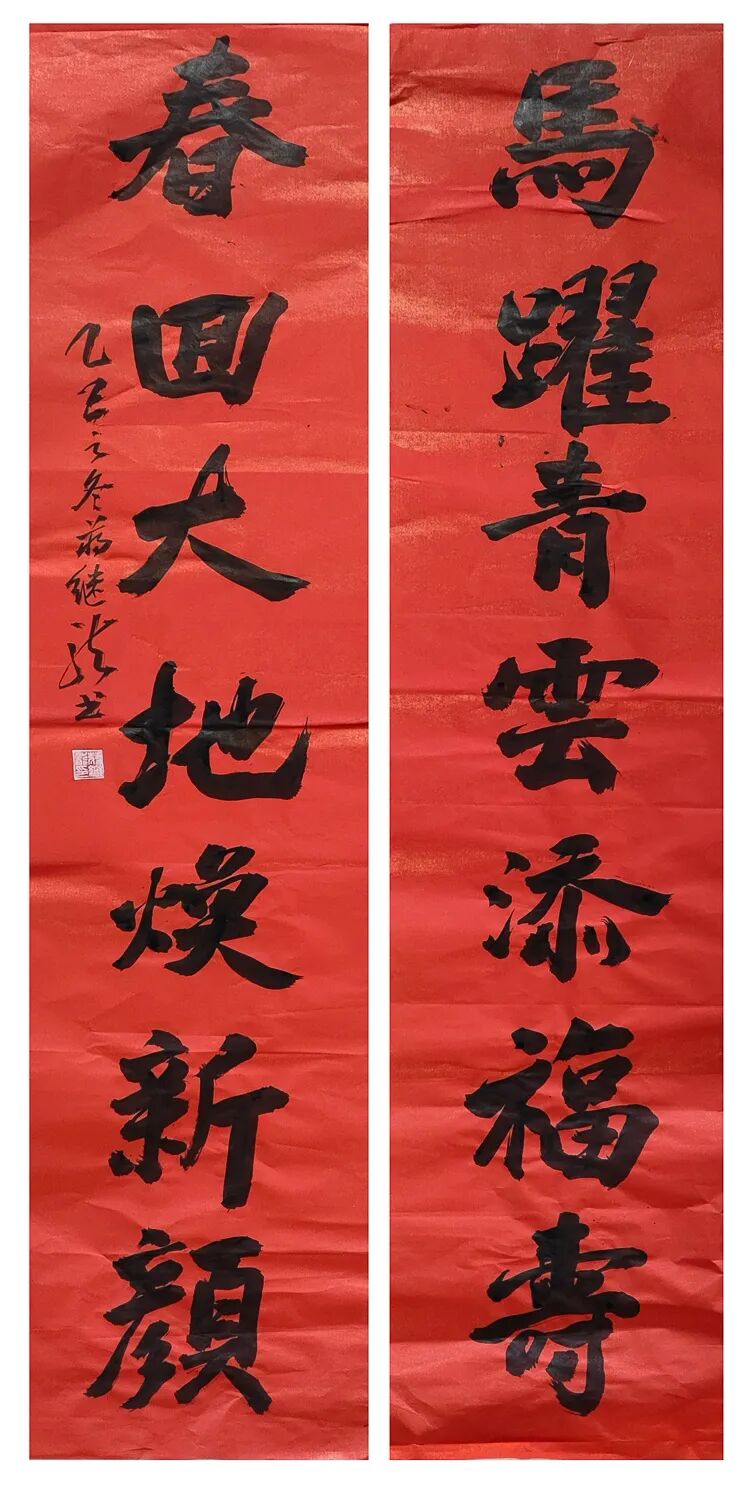 馬躍青雲添福壽
春回大地煥新顏
乙巳之冬蒋继龙书